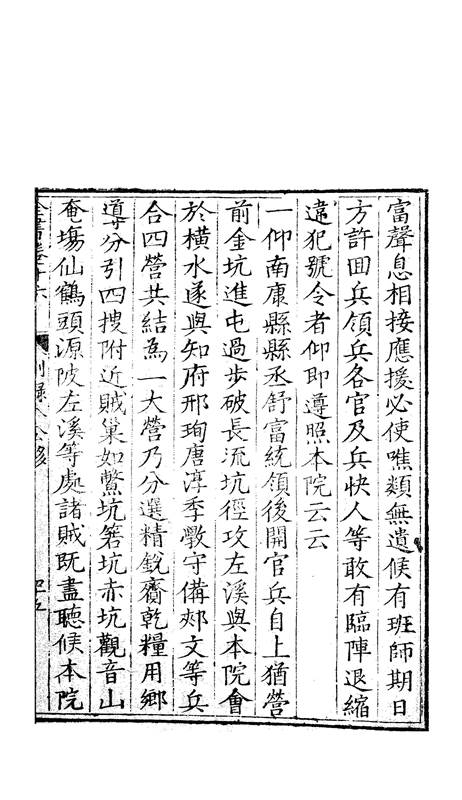 富聲息相接應援必使噍類無遺候有班師期日
方許囬兵領兵各官及兵快人等敢有臨陣退縮
違犯號令者仰即遵照本院云云
一仰南康縣縣丞舒富統領後開官兵自上猶營
前金坑進屯過步破長流坑徑攻左溪與本院會
於橫水遂與知府邢珣唐淳季斆守備郟文等兵
合四營共結爲一大營乃分選精銳齎乾糧用鄉
導分引四搜附近賊巢如鱉坑箬坑赤坑觀音山
奄塲仙鶴頭源陂左溪等處諸賊旣盡聽候本院
全書卷十六 別錄 公移 四五